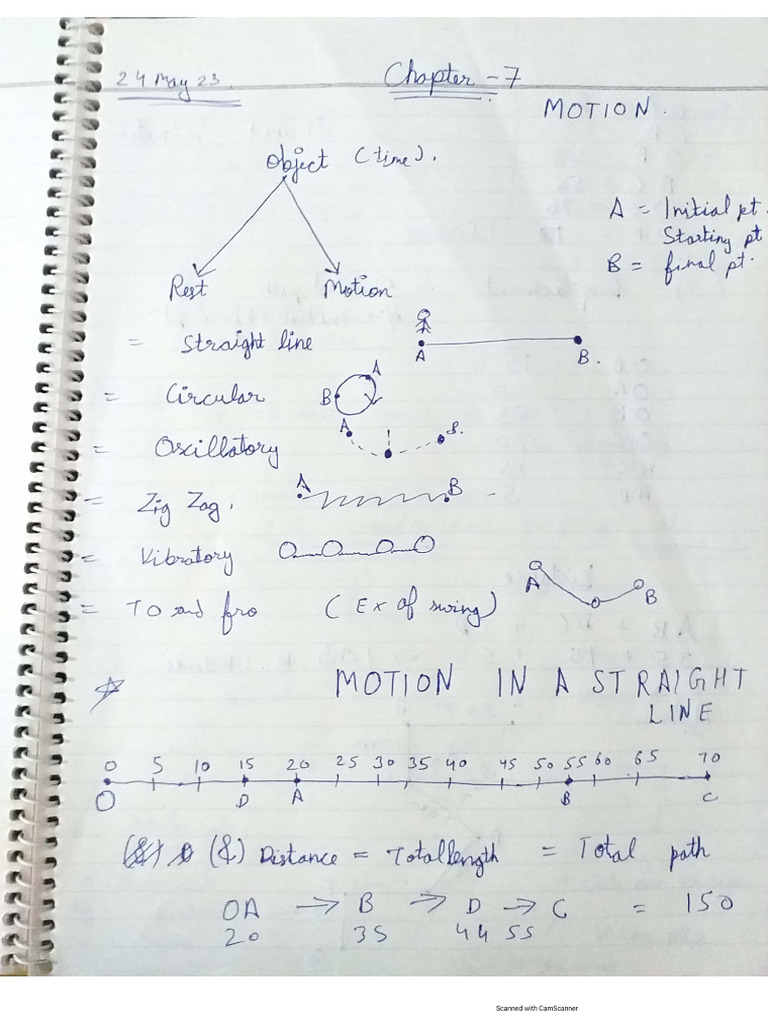 24 May 23.
Chapter - 7
MOTION.
Object (time).
A = Initial pt.
Starting pt
B = final pt.
Rest
Motion
= Straight line
A
B.
= Circular
A
B
= Oscillatory
A
B.
= Zig Zag.
A
B
= Vibratory
= To and fro (Ex of swing)
A
B
MOTION IN A STRAIGHT
LINE
0 5 10 15 20 25 30 35 40 45 50 55 60 65 70
O D A B C
(&) Distance = Total length = Total path
OA → B → D → C = 150
20 35 44 55
Scanned with CamScanner